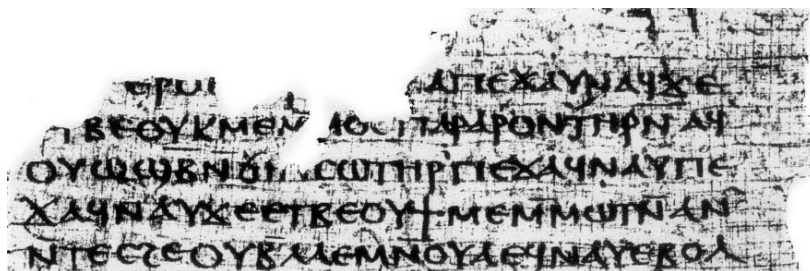 ⲡⲉϫⲁⲩⲛⲁϥϫⲉ
ⲃⲉⲟⲩⲕⲙⲉⲙ ⲙⲟⲥⲡⲁⲣⲁⲣⲟⲛⲧⲏⲣⲛ ⲁϥ
ⲟⲩⲱϣⲃⲛϭⲓⲡⲥⲱⲧⲏⲣⲡⲉϫⲁϥⲛⲁⲩⲡⲉ
ϫⲁϥⲛⲁⲩϫⲉⲉⲧⲃⲉⲟⲩϯⲙⲉⲙⲙⲱⲧⲛ ⲁⲛ
ⲛⲧⲉⲥϩⲉⲟⲩⲃⲗⲗⲉⲙⲛⲟⲩⲁⲉϥⲛⲁⲩⲉⲃⲟⲗ